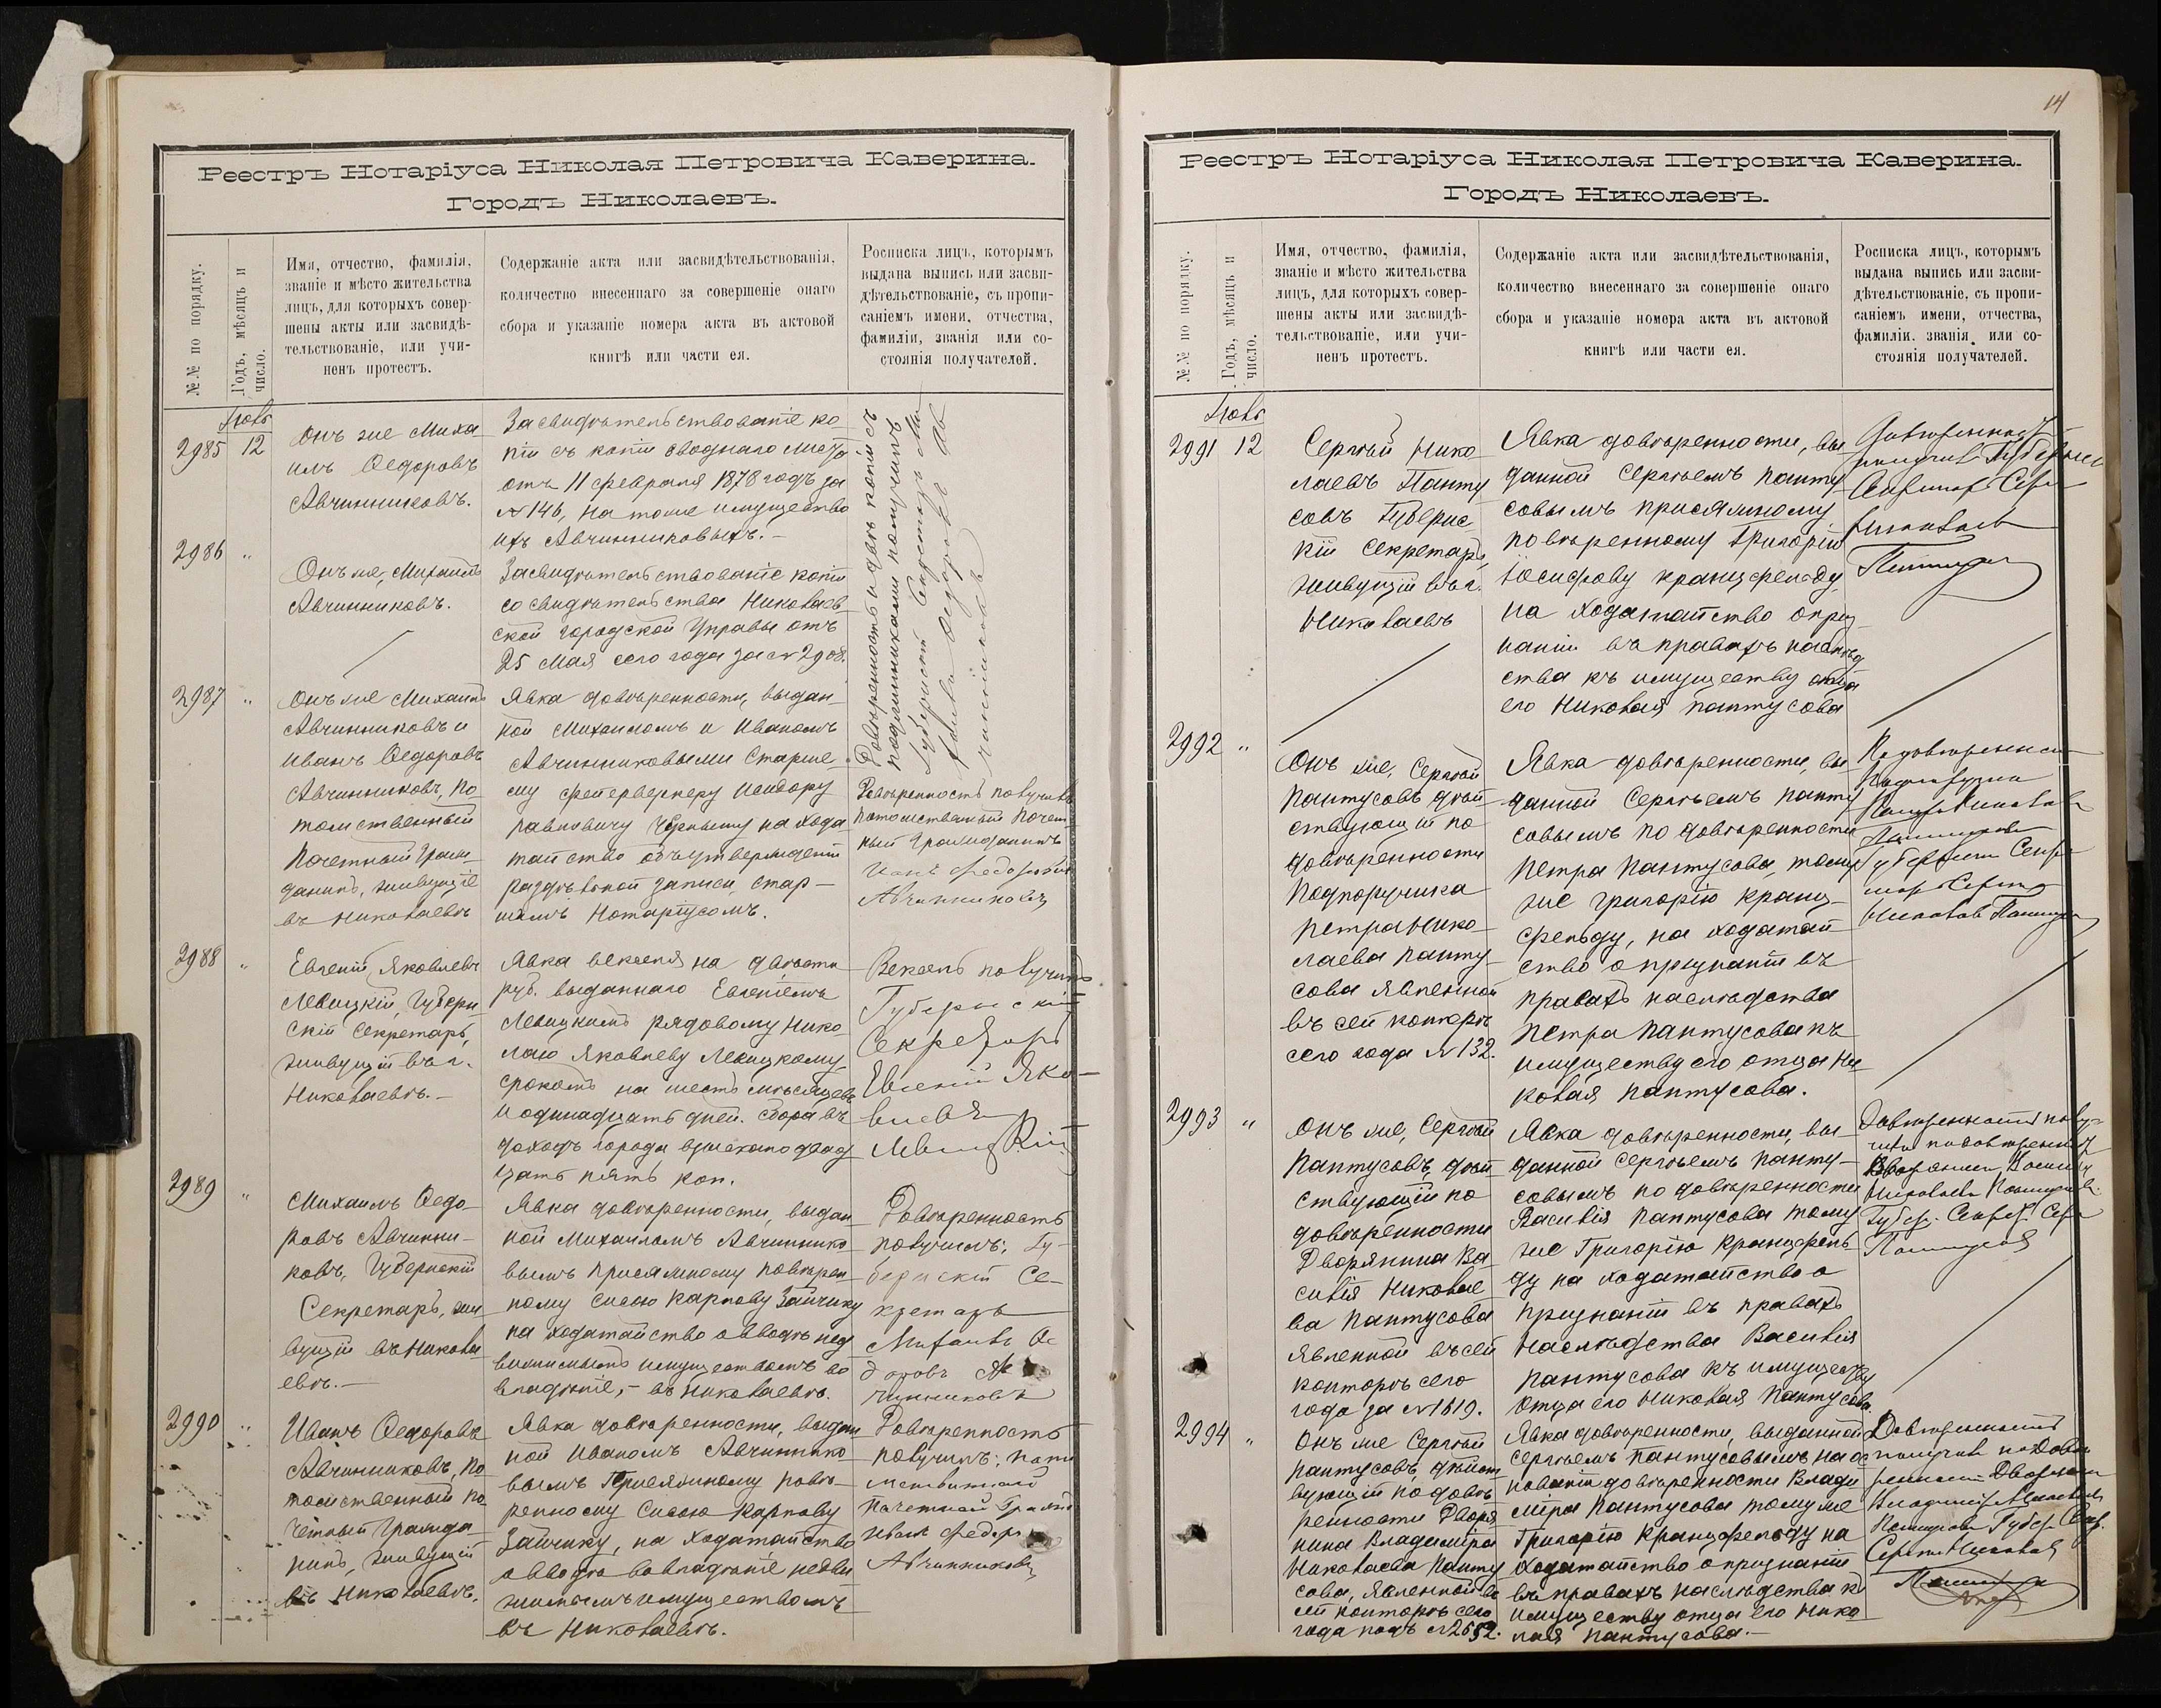 Реестръ Нотаріуса Николая Петровича Каверина.
Городъ Николаевъ.
№№ по порядку.
Годъ, мѣсяцъ и
число.
Имя, отчество, фамилія,
званіе и мѣсто жительства
лицъ, для которыхъ совер-
шены акты или засвидѣ-
тельствованіе, или учи-
ненъ протестъ.
Содержаніе акта или засвидѣтельствованія,
количество внесеннаго за совершеніе онаго
сбора и указаніе номера акта въ актовой
книгѣ или части ея.
Росписка лицъ, которымъ
выдана выпись или засви-
дѣтельствованіе, съ пропи-
саніемъ имени, отчества,
фамиліи, званія или со-
стоянія получателей.
2985
12
Онъ же Миха
илъ Ѳедоровъ
Авчинниковъ.
Засвидѣтельствованіе ко
піи съ копіи своднаго листа
отъ 11 февраля 1878 годъ за
№ 146, на тоже имущество
ихъ Авчинниковыхъ.-
2986 "
Онъ же, Михаилъ
Авчинниковъ.
Засвидѣтельствованіе копіи
со свидѣтельства Николаев
ской городской Управы отъ
25 Мая сего года за № 2908.
Довѣренность и двѣ копіи съ
подлинниками получилъ
Губернскій Секретарь Ми
хаилъ Ѳедоровъ Ав
чинниковъ
2987 "
Онъ же Михаилъ
Авчинниковъ и
Иванъ Ѳедоровъ
Авчинниковъ, по
томственный
Почетный Граж-
данинъ, живущіе
въ Николаевѣ
Явка довѣренности, выдан-
ной Михаиломъ и Иваномъ
Авчинниковыми Старше
му фейерверкеру Исидору
Павловичу Чёрному на хода
тайство объ утвержденіи
раздѣльной записи, стар-
шимъ Нотаріусомъ.
Довѣренность получилъ
Потомственный Почет
ный Гражданинъ
Иванъ Федоровъ
Авчинниковъ
2988 "
Евгеній Яковлевъ
Левицкій, Губерн
скій Секретарь,
живущій въ г.
Николаевѣ.-
Явка векселя на двѣсти
руб. выданнаго Евгеніемъ
Левицкимъ рядовому Нико
лаю Яковлеву Левицкому
срокомъ на шесть мѣсяцевъ
и одинадцать дней. сбора въ
доходъ города взыскано двад
цать пять коп.
Вексель получилъ
Губернскій
Секретарь
Евгеній Яко-
влевъ
Левицкій
2989 "
Михаилъ Ѳедо-
ровъ Авчинни-
ковъ, Губернскій
Секретарь, жи
вущій въ Никола
евѣ.-
Явка довѣренности, выдан
ной Михаиломъ Авчиннико
вымъ присяжному повѣрен
ному Сысою Карпову Зайчику
на ходатайство о вводѣ нед
вижимымъ имуществомъ во
владѣніе,- въ Николаевѣ.
Довѣренность
получилъ: Гу-
бернскій Се-
кретарь
Михаилъ Ѳе
доровъ Ав
чинниковъ
2990 "
Иванъ Ѳедоровъ
Авчинниковъ, по
томственный по
четный Гражда
нинъ, живущій
въ Николаевѣ.
Явка довѣренности, выдан
ной Иваномъ Авчиннико
вымъ Присяжному повѣ-
ренному Сысою Карпову
Зайчику, на ходатайство
о вводѣ во владѣніе недви
жимымъ имуществомъ
въ Николаевѣ.
Довѣренность
получилъ: пото
мственный
Почетный Гражд
Иванъ Федоровъ
Авчинниковъ
14
Реестръ Нотаріуса Николая Петровича Каверина.
Городъ Николаевъ.
№№ по порядку.
Годъ, мѣсяцъ и
число.
Имя, отчество, фамилія,
званіе и мѣсто жительства
лицъ, для которыхъ совер-
шены акты или засвидѣ-
тельствованіе, или учи-
ненъ протестъ.
Содержаніе акта или засвидѣтельствованія,
количество внесеннаго за совершеніе онаго
сбора и указаніе номера акта въ актовой
книгѣ или части ея.
Росписка лицъ, которымъ
выдана выпись или засви-
дѣтельствованіе, съ пропи-
саніемъ имени, отчества,
фамиліи. званія или со-
стоянія получателей.
2991
12
Сергѣй Нико
лаевъ Панту
совъ Губернс
кій Секретарь,
живущій въ г.
Николаевѣ
Явка довѣренности, вы
данной Сергѣемъ Панту
совымъ присяжному
повѣренному Григорію
Іосифову Кранцфельду,
на ходатайство о приз
наніи въ правахъ наслѣд
ства къ имуществу отца
его Николая Пантусова
Довѣренность
получилъ Губернск
Секретарь Сергѣй
Николаевъ
Пантусовъ
2992 "
Онъ же, Сергѣй
Пантусовъ дѣй
ствующій по
довѣренности
Подпоручика
Петра Нико
лаева Панту-
сова явленной
въ сей конторѣ
сего года № 132.
Явка довѣренности, вы
данной Сергѣемъ Панту
совымъ по довѣренности
Петра Пантусова, тому
же Григорію Кранц-
фельду, на ходатай
ство о признаніи въ
правахъ наслѣдства
Петра Пантусова къ
имуществу его отца Ни
колая Пантусова.
2993 "
Онъ же, Сергѣй
Пантусовъ, дѣй
ствующій по
довѣренности
Дворянина Ва
силія Николае
ва Пантусова
явленной въ сей
конторѣ сего
года за № 1819.
Явка довѣренности, вы-
данной Сергѣемъ Панту-
совымъ по довѣренности
Василія Пантусова тому
же Григорію Кранцфель
ду на ходатайство о
признаніи въ правахъ
наслѣдства Василія
Пантусова къ имуществу
отца его Николая Пантусова.
2994 "
Онъ же Сергѣй
Пантусовъ, дѣйст
вующій по довѣ
ренности Дворя
нина Владиміра
Николаева Панту
сова, явленной въ
сей конторѣ сего
года подъ № 2652.
Явка довѣренности, выданной
Сергѣемъ Пантусовымъ на ос
нованіи довѣренности Влади
міра Пантусова тому же
Григорію Кранцфельду на
ходатайство о признаніи
въ правахъ наслѣдства къ
имуществу отца его Нико
лая Пантусова.-